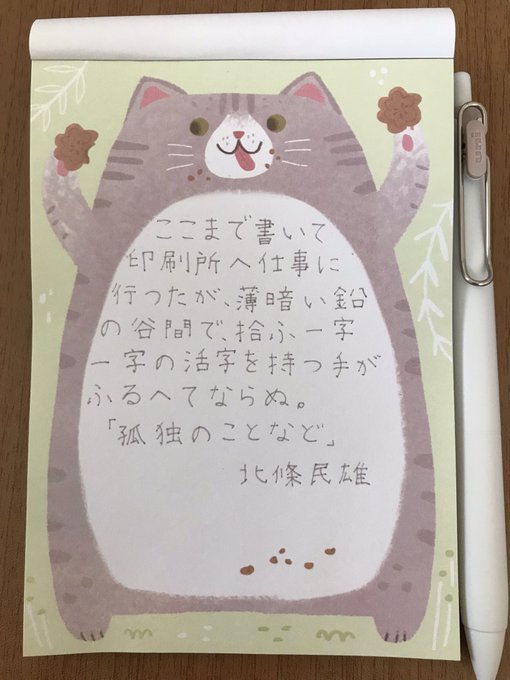 ここまで書いて
印刷所へ仕事に
行つたが、薄暗い鉛
の谷間で、拾ふ一字
一字の活字を持つ手が
ふるへてならぬ。
「孤独のことなど」
北條民雄